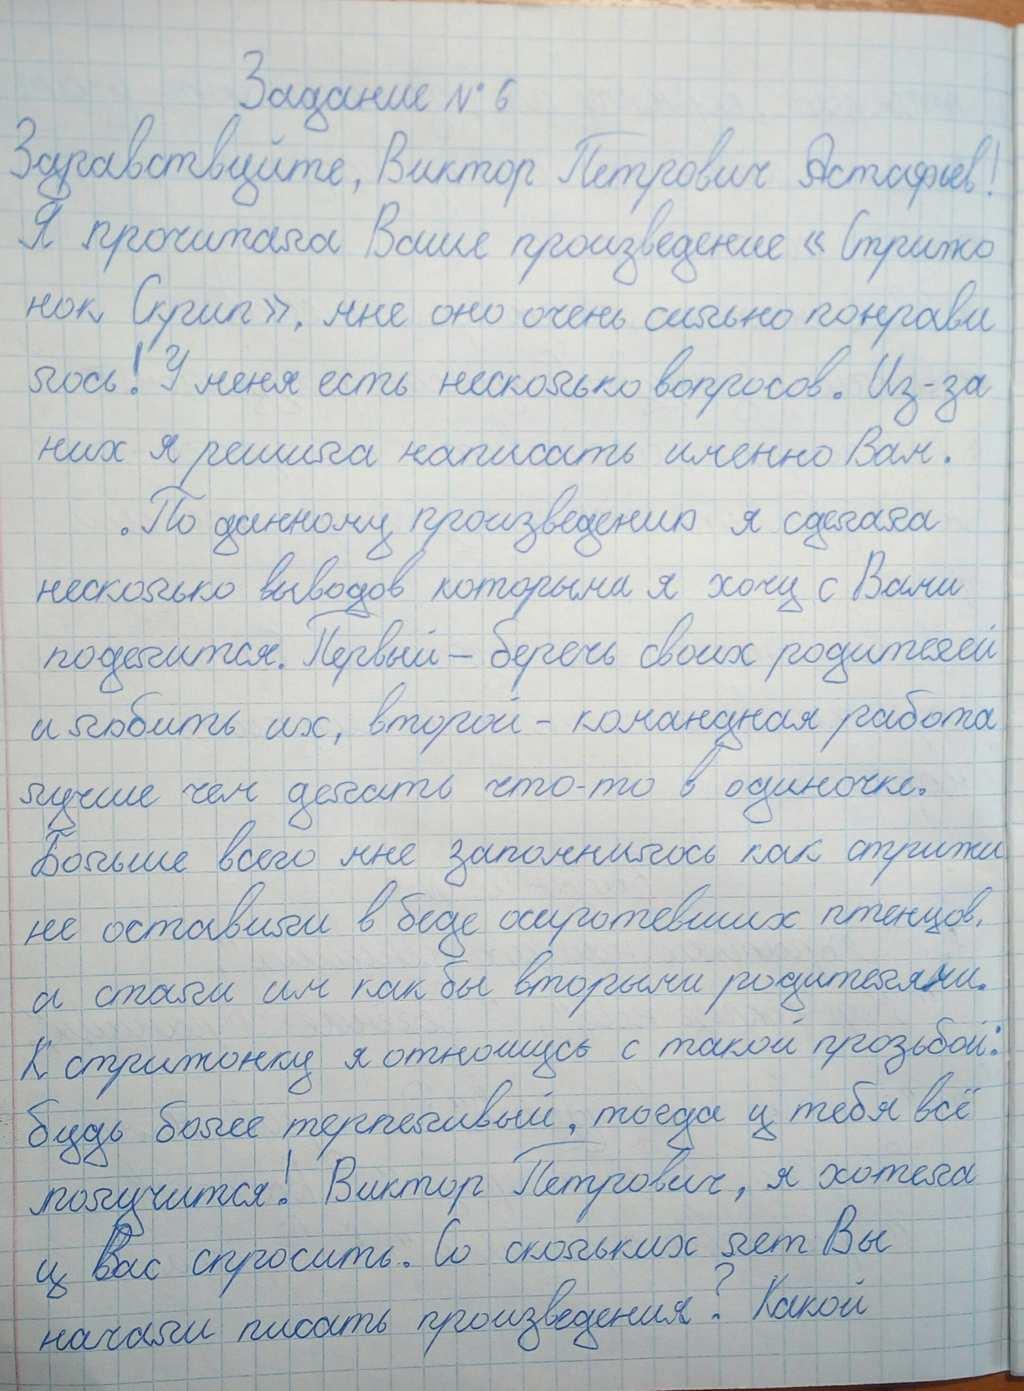 Задание № 6
Здравствуйте, Виктор Петрович Астафьев!
Я прочитала Ваше произведение «Стрижо
нок Скрип», мне оно очень сильно понрави
лось! У меня есть несколько вопросов. Из-за
них я решила написать именно Вам.
. По данному произведению я сделала
несколько выводов которыма я хочу с Вами
поделится. Первый – беречь своих родителей
и любить их, второй – командная работа
лучше чем делать что-то в одиночке.
Больше всего мне запомнилось как стрижи
не оставили в беде осиротевших птенцов,
а стали им как бы вторыми родителями.
К стрижонку я отношусь с такой прозьбой:
будь более терпеливый, тогда у тебя всё
получится! Виктор Петрович, я хотела
у Вас спросить. Со скольких лет Вы
начали писать произведения? Какой